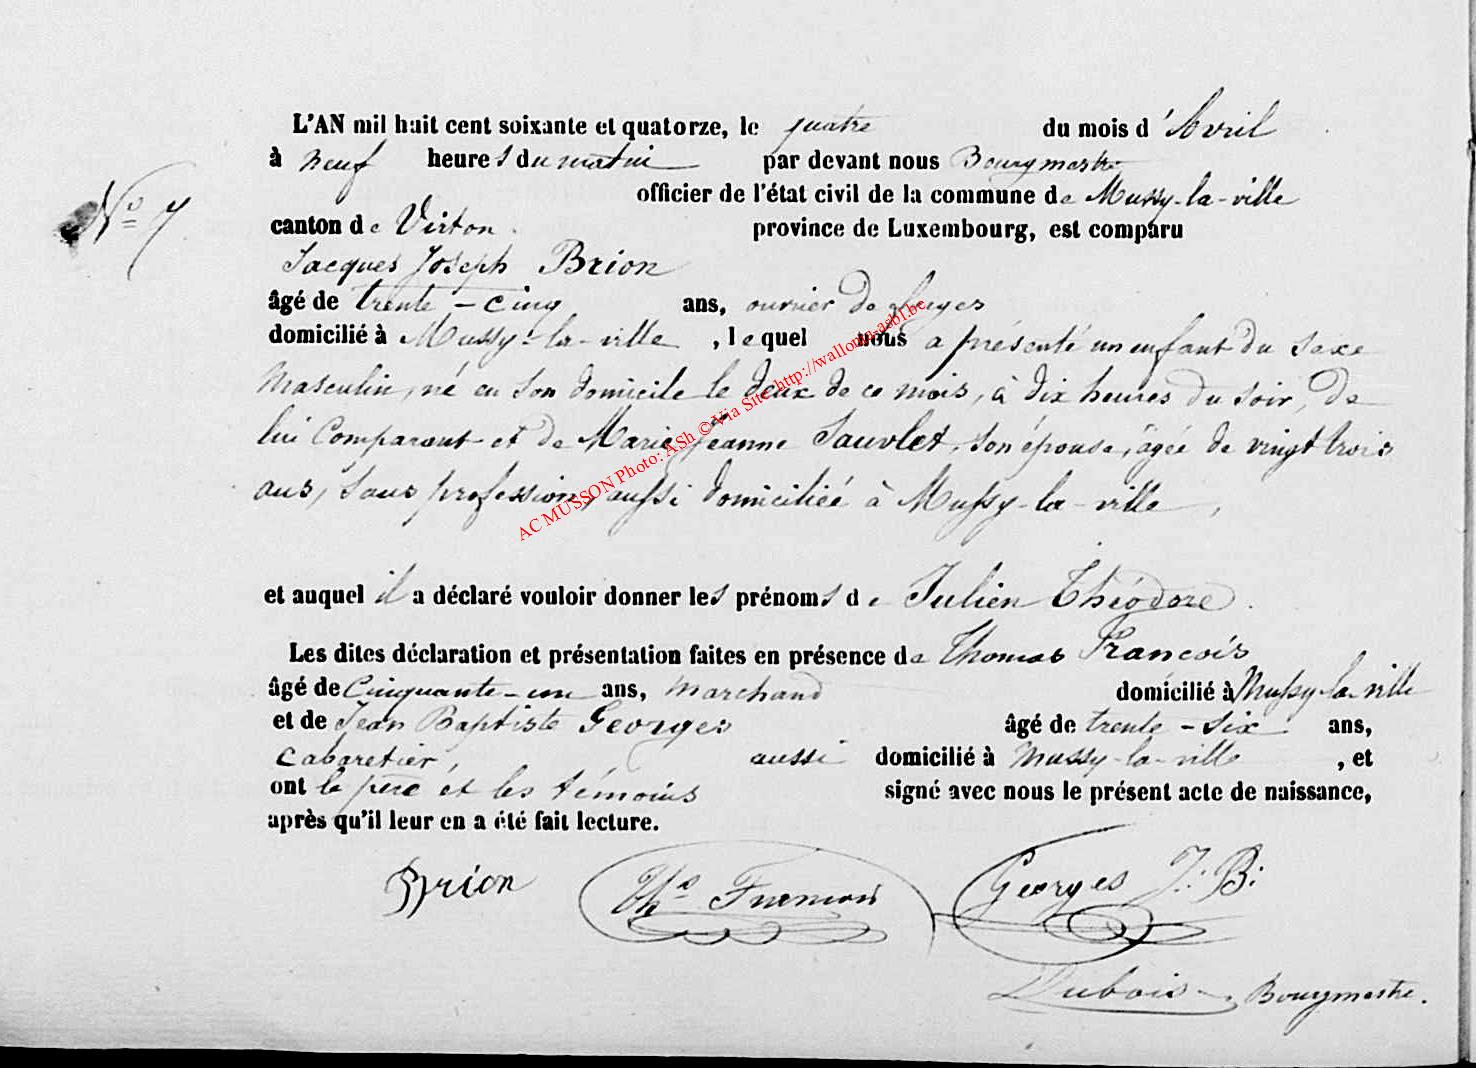 L'AN mil huit cent soixante et quatorze, le quatre du mois d'Avril
N° 7
à neuf heures du matin par devant nous Bourgmestre
officier de l'état civil de la commune de Mussy-la-ville
canton de Virton province de Luxembourg, est comparu
Jacques Joseph Brion
âgé de trente-cinq ans, ouvrier de forges
domicilié à Mussy-la-ville, lequel nous a présenté un enfant du sexe
masculin, né en son domicile le deux de ce mois, à dix heures du soir, de
lui comparant et de Marie Jeanne Sauvlet, son épouse, âgée de vingt trois
ans, sans profession, aussi domiciliée à Mussy-la-ville,
et auquel il a déclaré vouloir donner les prénoms de Julien Théodore.
Les dites déclaration et présentation faites en présence de Thomas François
âgé de Cinquante-un ans, marchand domicilié à Mussy-la-ville
et de Jean Baptiste Georges âgé de trente-six ans,
cabaretier, aussi domicilié à Mussy-la-ville, et
ont le père et les témoins signé avec nous le présent acte de naissance,
après qu'il leur en a été fait lecture.
Brion Ths Georges J: B:
Dubois Bourgmestre.
AC MUSSON Photo: ASh © Via Site http://wallonia-asbl.be